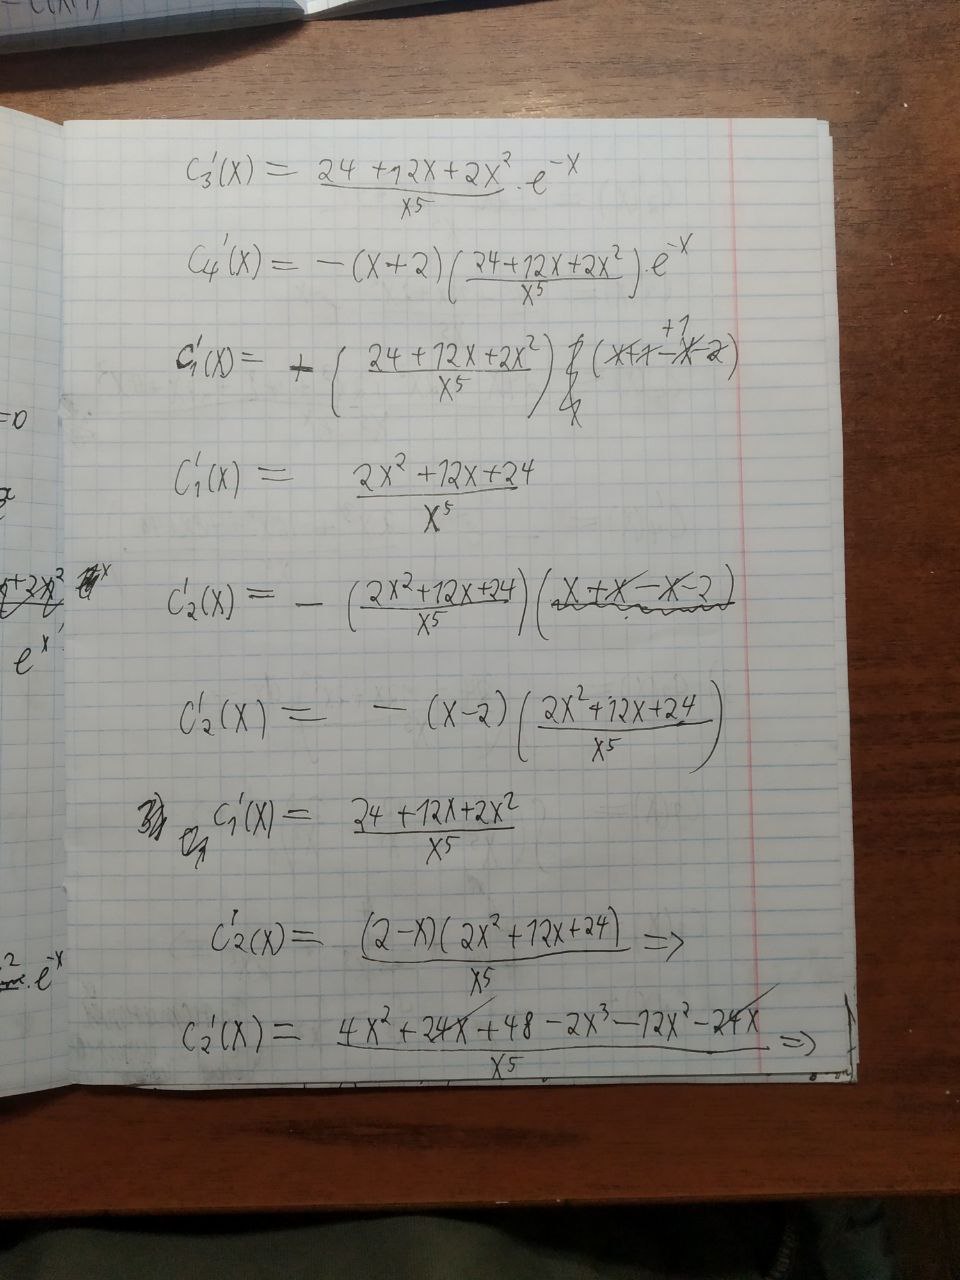 C₃'(x) = (24 + 12x + 2x²)/x⁵ · e⁻ˣ
C₄'(x) = -(x+2)((24 + 12x + 2x²)/x⁵) · e⁻ˣ
C₁'(x) = + ((24 + 12x + 2x²)/x⁵) (x+1-x-2) +1
C₁'(x) = (2x² + 12x + 24)/x⁵
C₂'(x) = - ((2x² + 12x + 24)/x⁵)(x+x-x-2)
C₂'(x) = - (x-2)((2x² + 12x + 24)/x⁵)
3) C₁'(x) = (24 + 12x + 2x²)/x⁵
C₂'(x) = (2-x)(2x² + 12x + 24)/x⁵ =>
C₂'(x) = (4x² + 24x + 48 - 2x³ - 12x² - 24x)/x⁵ =>
=0
+2x²
eˣ
2 · e⁻ˣ